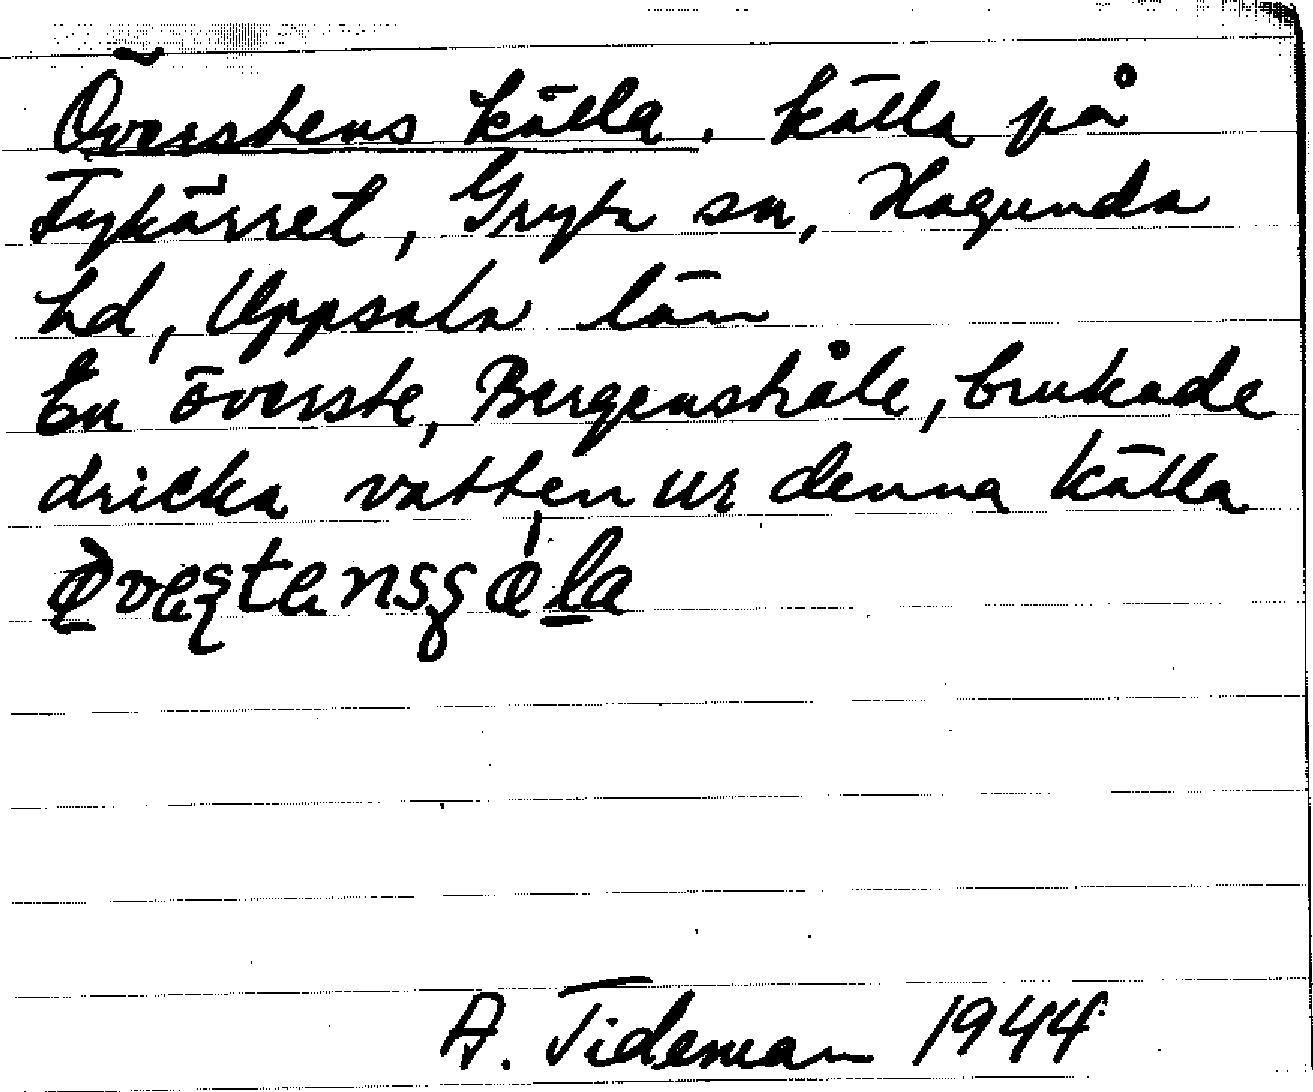 Överstens källa. källa på
Fykärret, Gryta sn, Hagunda
hd, Uppsala län
En överste, Bergenstråle, brukade
dricka vatten ur denna källa
A. Tideman 1944